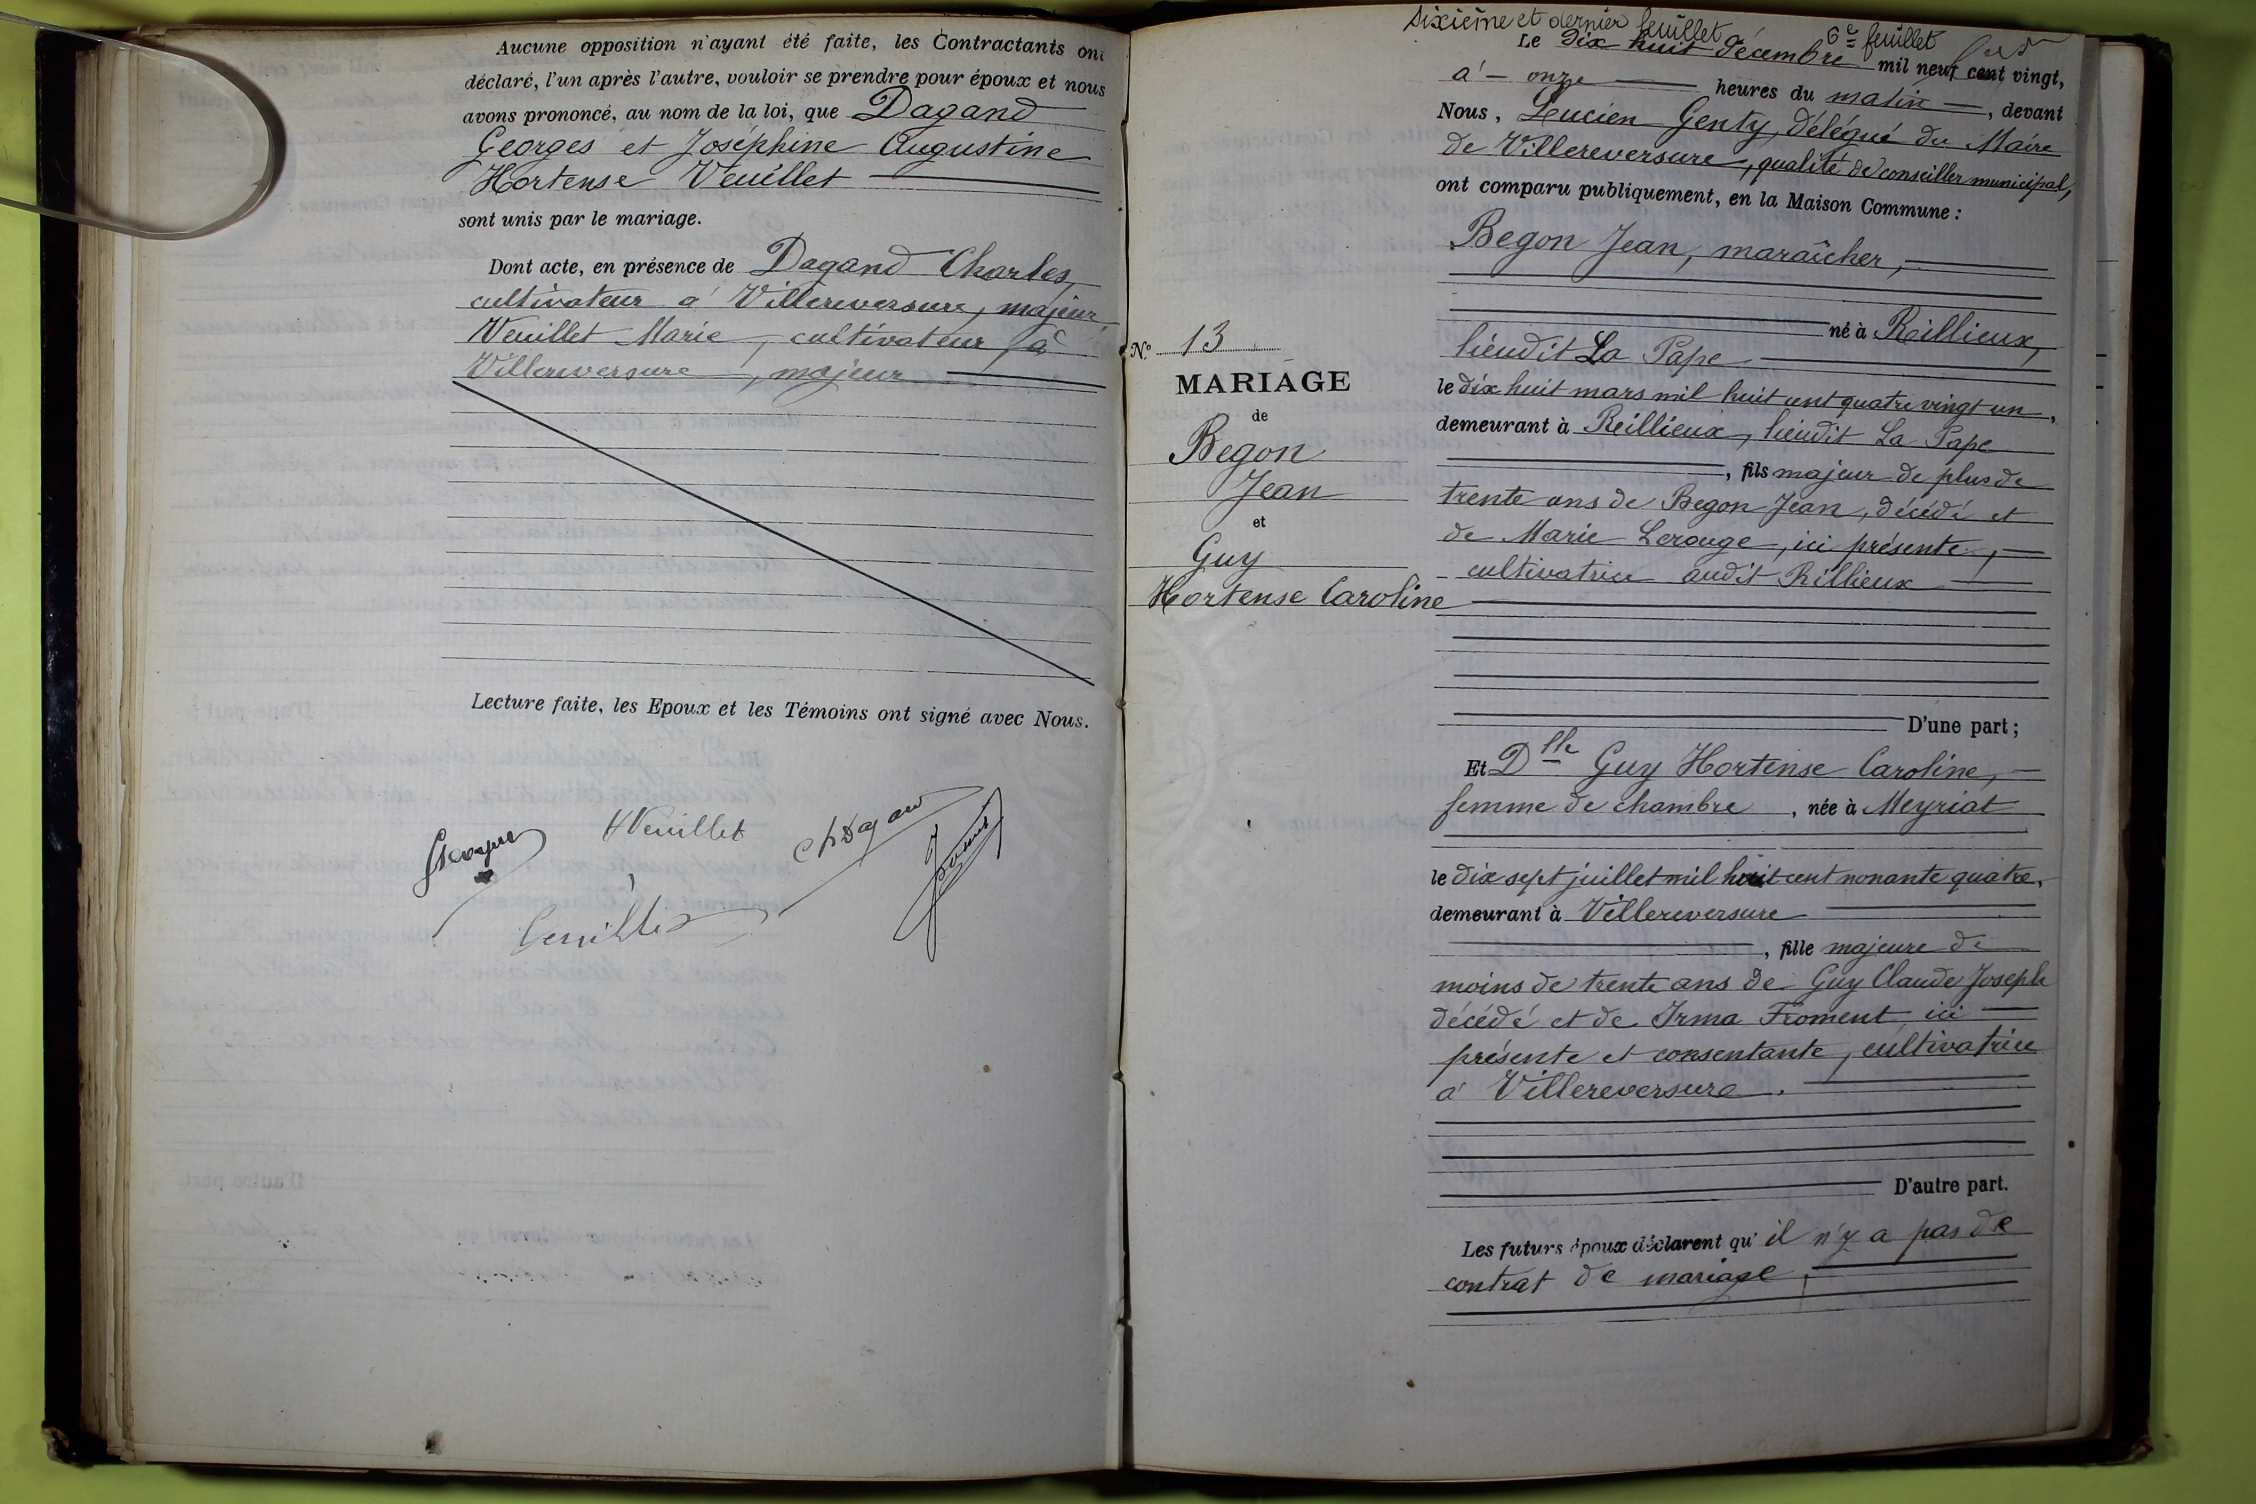 Aucune opposition n'ayant été faite, les Contractants ont
déclaré, l'un après l'autre, vouloir se prendre pour époux et nous
avons prononcé, au nom de la loi, que Dagand
Georges et Joséphine Augustine
Hortense Veuillet
sont unis par le mariage.
Dont acte, en présence de Dagand Charles,
cultivateur à Villereversure, majeur
Veuillet Marie, cultivateur, à
Villereversure, majeur
Lecture faite, les Epoux et les Témoins ont signé avec Nous.
HVeuillet
ch Dagand
N° 13
MARIAGE
de
Begon
Jean
et
Guy
Hortense Caroline
Sixième et dernier feuillet
6e feuillet
Le dix huit décembre mil neuf cent vingt,
à - onze heures du matin, devant
Nous, Lucien Genty, délégué du Maire
de Villereversure, qualité de conseiller municipal,
ont comparu publiquement, en la Maison Commune :
Begon Jean, maraîcher,
né à Reillieux,
lieudit La Pape
le dix huit mars mil huit cent quatre vingt un,
demeurant à Reillieux, lieudit La Pape
, fils majeur de plus de
trente ans de Begon Jean, décédé et
de Marie Lerouge, ici présente,
cultivatrice audit Rillieux
D'une part ;
Et Dlle Guy Hortense Caroline,
femme de chambre, née à Meyriat
le dix sept juillet mil huit cent nonante quatre,
demeurant à Villereversure
, fille majeure de
moins de trente ans de Guy Claude Joseph
décédé et de Irma Froment, ici
présente et consentante, cultivatrice
à Villereversure.
D'autre part.
Les futurs époux déclarent qu'il n'y a pas de
contrat de mariage,